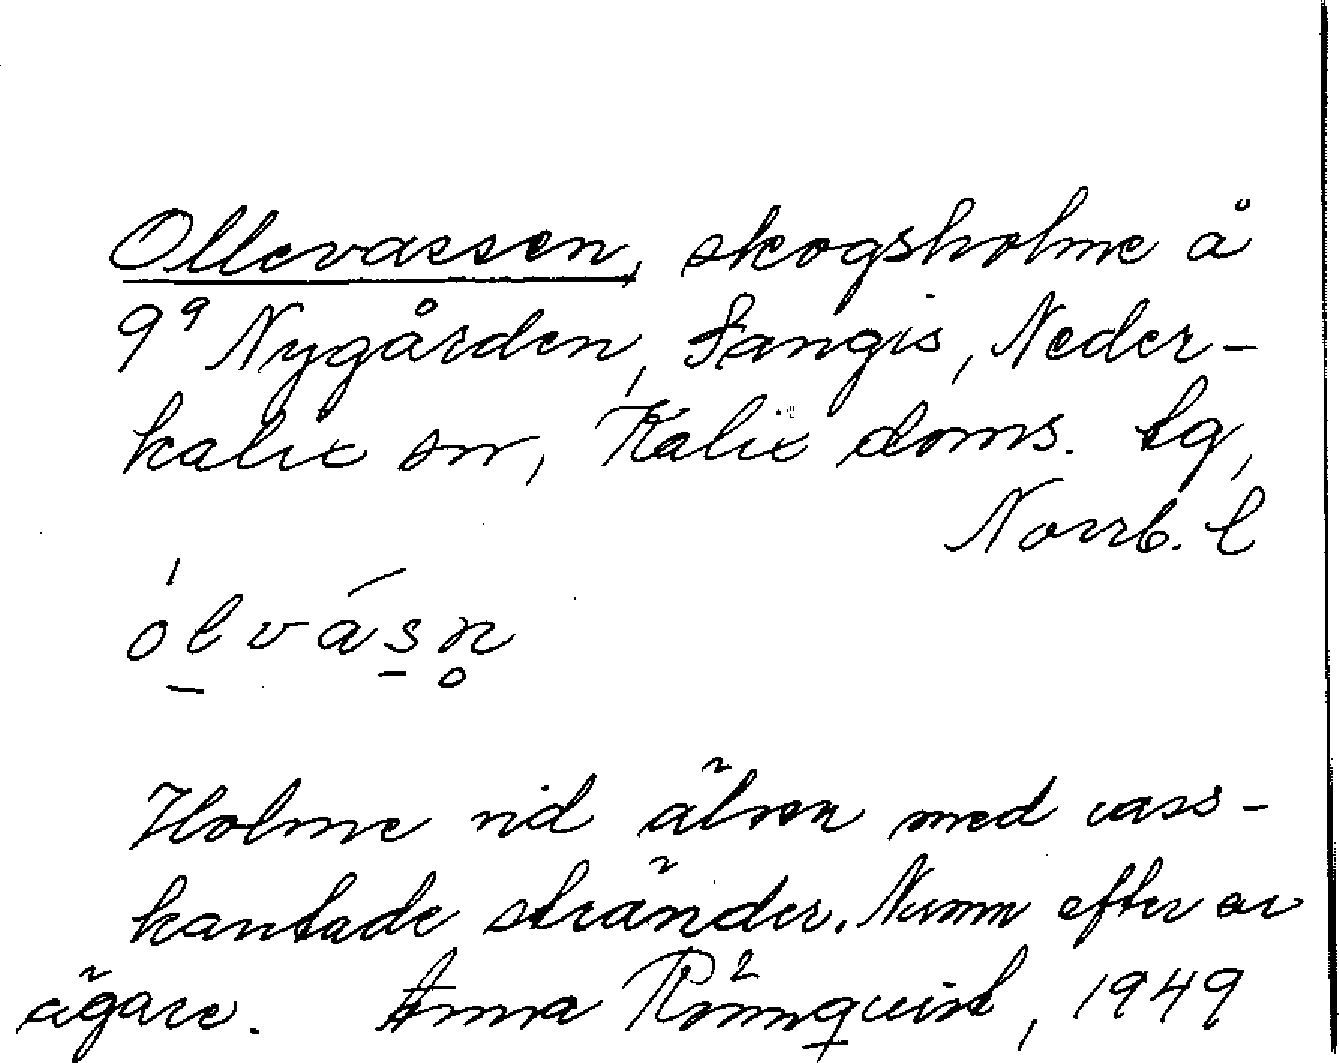 Ollevassen, skogsholme å
9⁹ Nygården, Sangis, Neder-
kalix sn, Kalix doms. tg,
Norrb. l
ó̲l̲vás̲n̥
Holme vid älven med vass-
kantade stränder. Namn efter
ägare. Anna Rönnquist, 1949